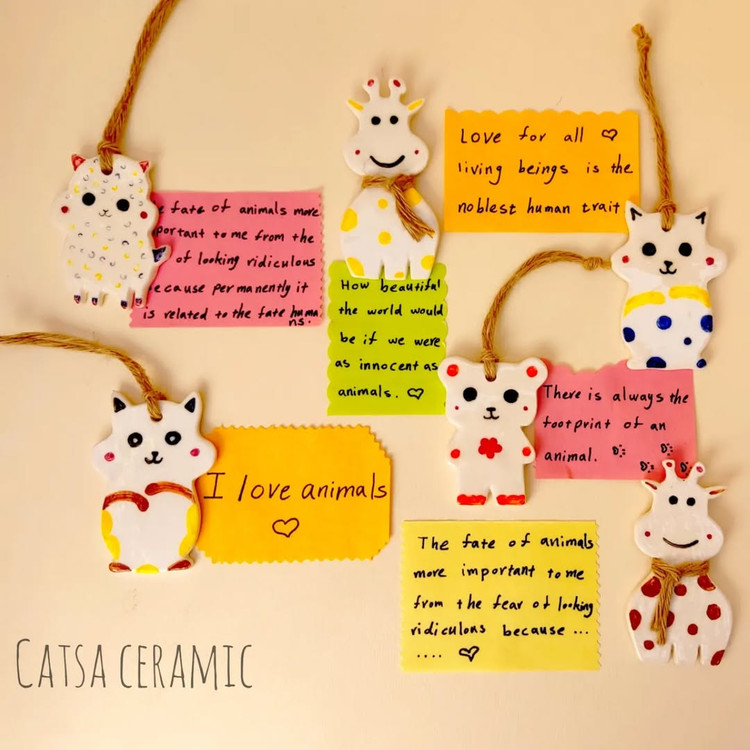 fate of animals more
portant to me from the
of looking ridiculous
ecause permanently it
is related to the fate huma
ns.
How beautiful
the world would
be if we were
as innocent as
animals. ♡
Love for all ♡
living beings is the
noblest human trait
There is always the
footprint of an
animal.
I love animals
♡
The fate of animals
more important to me
from the fear of looking
ridiculous because ...
.... ♡
CATSA CERAMIC